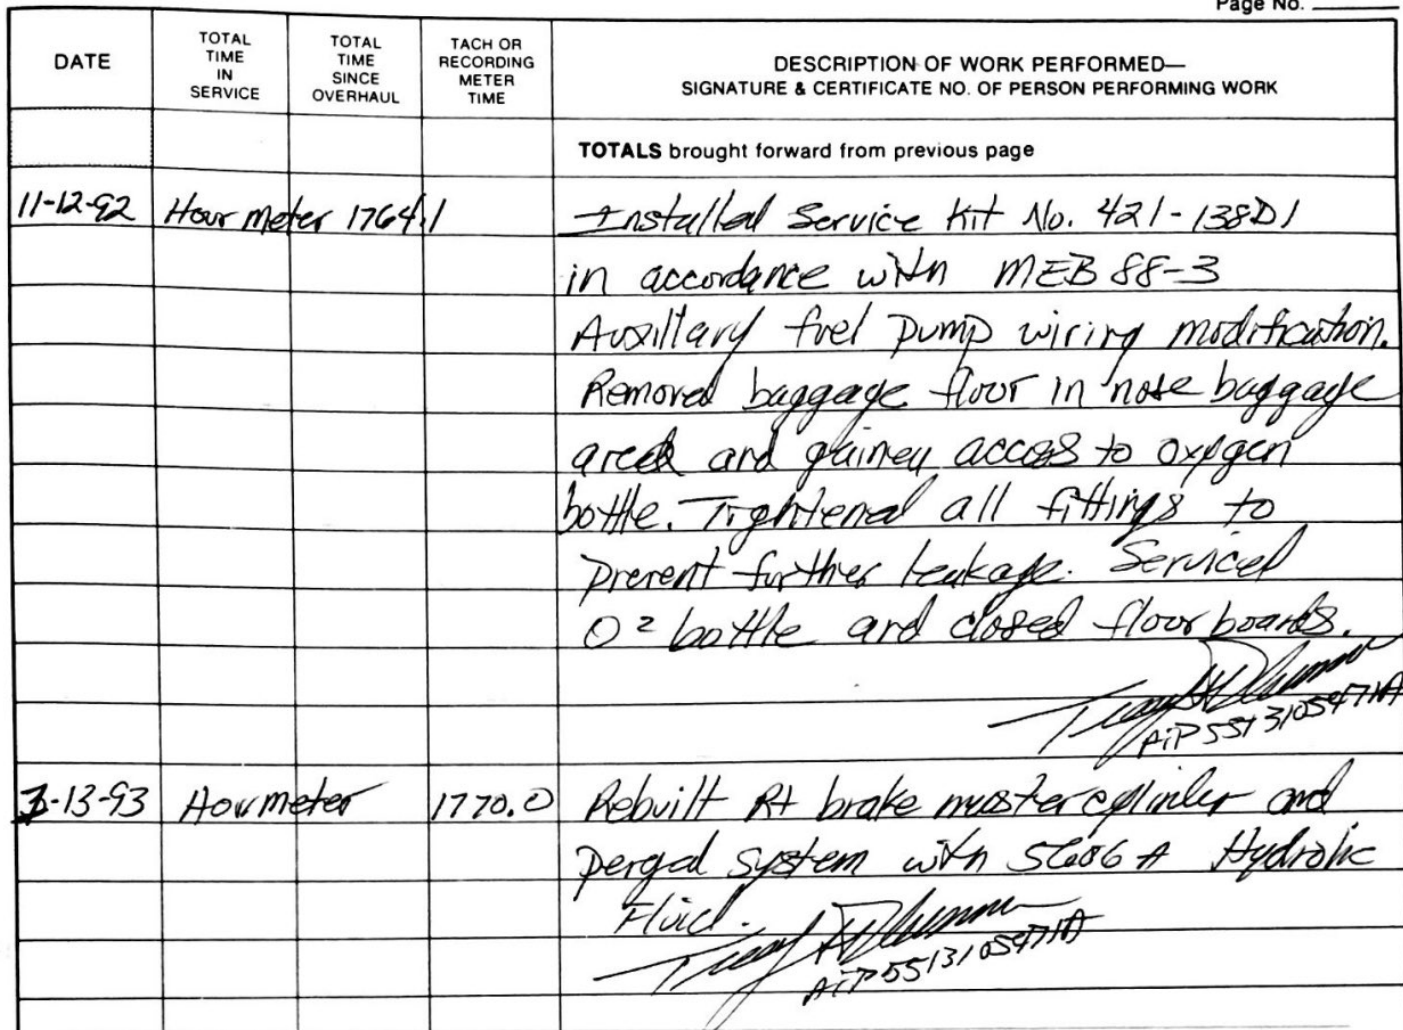 Page No.
DATE
TOTAL TIME IN SERVICE
TOTAL TIME SINCE OVERHAUL
TACH OR RECORDING METER TIME
DESCRIPTION OF WORK PERFORMED—
SIGNATURE & CERTIFICATE NO. OF PERSON PERFORMING WORK
TOTALS brought forward from previous page
11-12-92 Hour meter 1764.1 Installed Service Kit No. 421-138D1
in accordance with MEB 88-3
Auxillary fuel pump wiring modification.
Removed baggage floor in nose baggage
area and gained access to oxygen
bottle. Tightened all fittings to
prevent further leakage. Serviced
O2 bottle and closed floor boards.
-13-93 Hourmeter 1770.0 Rebuilt Rt brake mastercylinder and
perged system with 5606 A Hydrolic
Fluid.